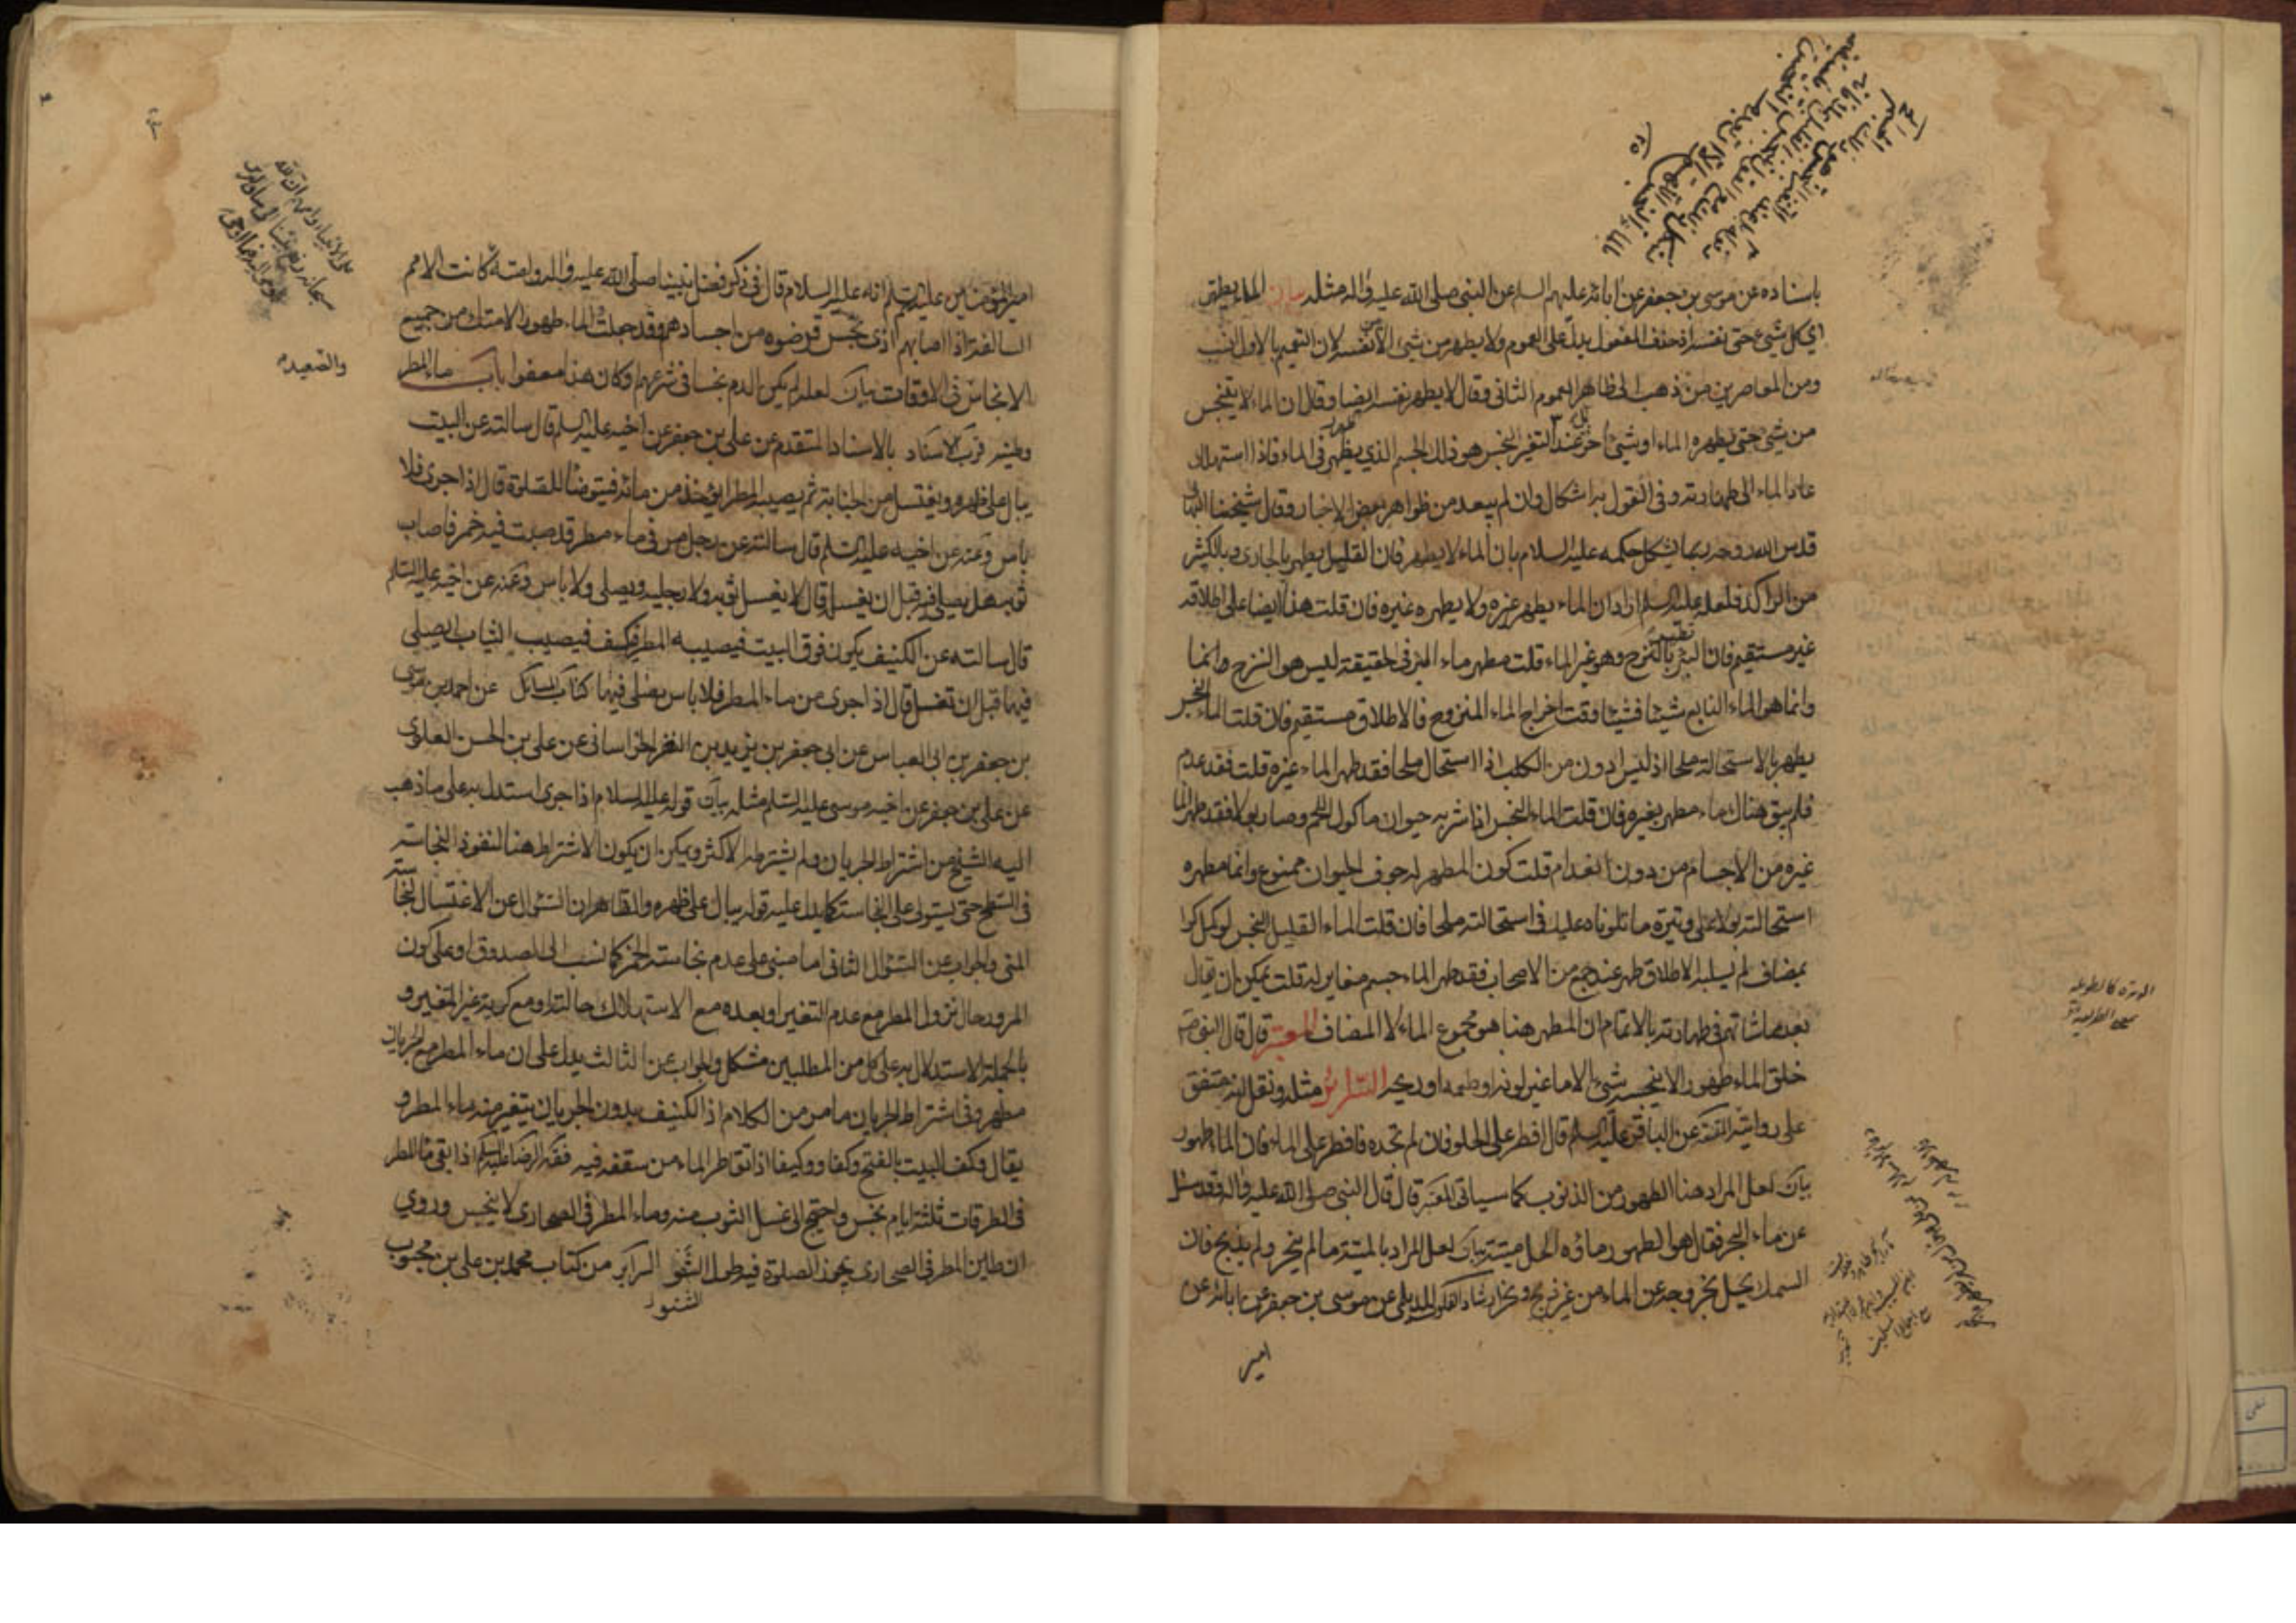 باسناده عن موسى بن جعفر عن ابائه عليهم السلم عن النبي صلى الله عليه واله مثله بيان الماء يطهر
اي كل شيء حتى نفسه اذ حذف المفعول يدل على العموم ولا يطهر من شيء الا نفسه لان التعميم بالاول انسب
ومن المعاصرين من ذهب الى ظاهر العموم الثاني وقال لا يطهر نفسه ايضا وقال ان الماء لا يتنجس
من شيء حتى يطهره الماء او شيء اخر عند التغير النجس هو ذلك الجسم الذي يظهر في الماء فاذا استهلك
عاد الماء الى طهارته وفي القول به اشكال وان لم يبعد من ظواهر بعض الاخبار وقال شيخنا البهائي
قدس الله روحه ربما يشكل حكمه عليه السلام بان الماء لا يطهر فان القليل يطهر بالجاري وبالكثير
من الراكد فلعله عليه السلم اراد ان الماء يطهر غيره ولا يطهره غيره فان قلت هذا ايضا على اطلاقه
غير مستقيم فان البئر تطهر بالنزح وهو غير الماء قلت مطهر ماء البئر في الحقيقة ليس هو النزح وانما
وانما هو الماء النابع شيئا فشيئا وقت اخراج الماء المنزوح فالاطلاق مستقيم فان قلت الماء النجس
يطهر بالاستحالة ملحا اذ ليس ادون من الكلب اذا استحال ملحا فقد طهر الماء غيره قلت فقد عدم
فلم يبق هناك ماء مطهر بغيره فان قلت الماء النجس اذا شربه حيوان ماكول اللحم وصار بولا فقد طهر الماء
غيره من الاجسام من دون انعدام قلت كون المطهر له جوف الحيوان ممنوع وانما مطهره
استحالته بولا على وتيرة ما تلوناه عليك في استحالته ملحا فان قلت الماء القليل النجس لو كمل كرا
بمضاف لم يسلبه الاطلاق طهر عند جمع من الاصحاب فقد طهر الماء جسم مغاير له قلت يمكن ان يقال
بعد مماشاتهم في طهارته بالاتمام ان المطهر هنا هو مجموع الماء لا المضاف المعتبر قال قال النبي ص
خلق الماء طهورا لا ينجسه شيء الا ما غير لونه او طعمه او ريحه السرائر مثله ونقل انه متفق
على روايته المقنعة عن الباقر عليه السلم قال افطر على الحلو فان لم تجده فافطر على الماء فان الماء طهور
بيان لعل المراد هنا الطهور من الذنوب كما سياتي المعتبر قال قال النبي صلى الله عليه واله وقد سئل
عن ماء البحر فقال هو الطهور ماؤه الحل ميتته بيان لعل المراد بالميتة ما لم ينحر ولم يذبح فان
السمك يحل بخروجه عن الماء من غير ذبح ونحر ارشاد القلوب للديلمي عن موسى بن جعفر عن ابائه عن
امير
امير المؤمنين عليهم السلم انه عليه السلام قال في ذكر فضل نبينا صلى الله عليه واله وامته كانت الامم
السالفة اذا اصابهم اذى نجس قرضوه من اجسادهم وقد جعلت الماء طهورا لامتك من جميع
الانجاس في الاوقات بيان لعله لم يكن الدم نجسا في شرعهم او كان هذا معفوا باب ماء المطر
والصعيد
وطينه قرب الاسناد بالاسناد المتقدم عن علي بن جعفر عن اخيه عليه السلم قال سالته عن البيت
يبال على ظهره ويغتسل من الجنابة ثم يصيبه المطر ايؤخذ من مائه فيتوضا للصلوة قال اذا جرى فلا
باس وعنه عن اخيه عليه السلم قال سالته عن رجل مر في ماء مطر قد صبت فيه خمر فاصاب
ثوبه هل يصلي فيه قبل ان يغسل قال لا يغسل ثوبه ولا رجليه ويصلي ولا باس وعنه عن اخيه عليه السلم
قال سالته عن الكنيف يكون فوق البيت فيصيبه المطر فيكف فيصيب الثياب ايصلى
فيها قبل ان تغسل قال اذا جرى من ماء المطر فلا باس يصلى فيها كتاب المسائل عن احمد بن موسى
بن جعفر بن ابي العباس عن ابي جعفر بن يزيد بن النضر الخراساني عن علي بن الحسن العلوي
عن علي بن جعفر عن اخيه موسى عليه السلم مثله بيان قوله عليه السلام اذا جرى استدل به على ما ذهب
اليه الشيخ من اشتراط الجريان ولم يشترطه الاكثر ويمكن ان يكون الاشتراط هنا لنفوذ النجاسة
في السطح حتى يستولي على النجاسة كما يدل عليه قوله يبال على ظهره والظاهر ان السئوال عن الاغتسال لنجاسة
المني والجواب عن السئوال الثاني اما مبني على عدم نجاسة الخمر كما نسب الى الصدوق او على كون
المرور حال نزول المطر مع عدم التغير او بعده مع الاستهلاك حالته او مع كرية غير المتغير و
بالجملة الاستدلال به على كل من المطلبين مشكل والجواب عن الثالث يدل على ان ماء المطر مع الجريان
مطهر وفي اشتراط الجريان ما مر من الكلام اذ الكنيف بدون الجريان يتغير منه ماء المطر و
يقال وكف البيت بالفتح وكفا ووكيفا اذا تقاطر الماء من سقفه فيه فقه الرضا عليه السلم اذا بقي ماء المطر
في الطرقات ثلثة ايام نجس واحتيج الى غسل الثوب منه وماء المطر في الصحاري لا ينجس وروي
ان طين المطر في الصحاري يجوز الصلوة فيه طول الشتو السرائر من كتاب محمد بن علي بن محبوب
الشتور